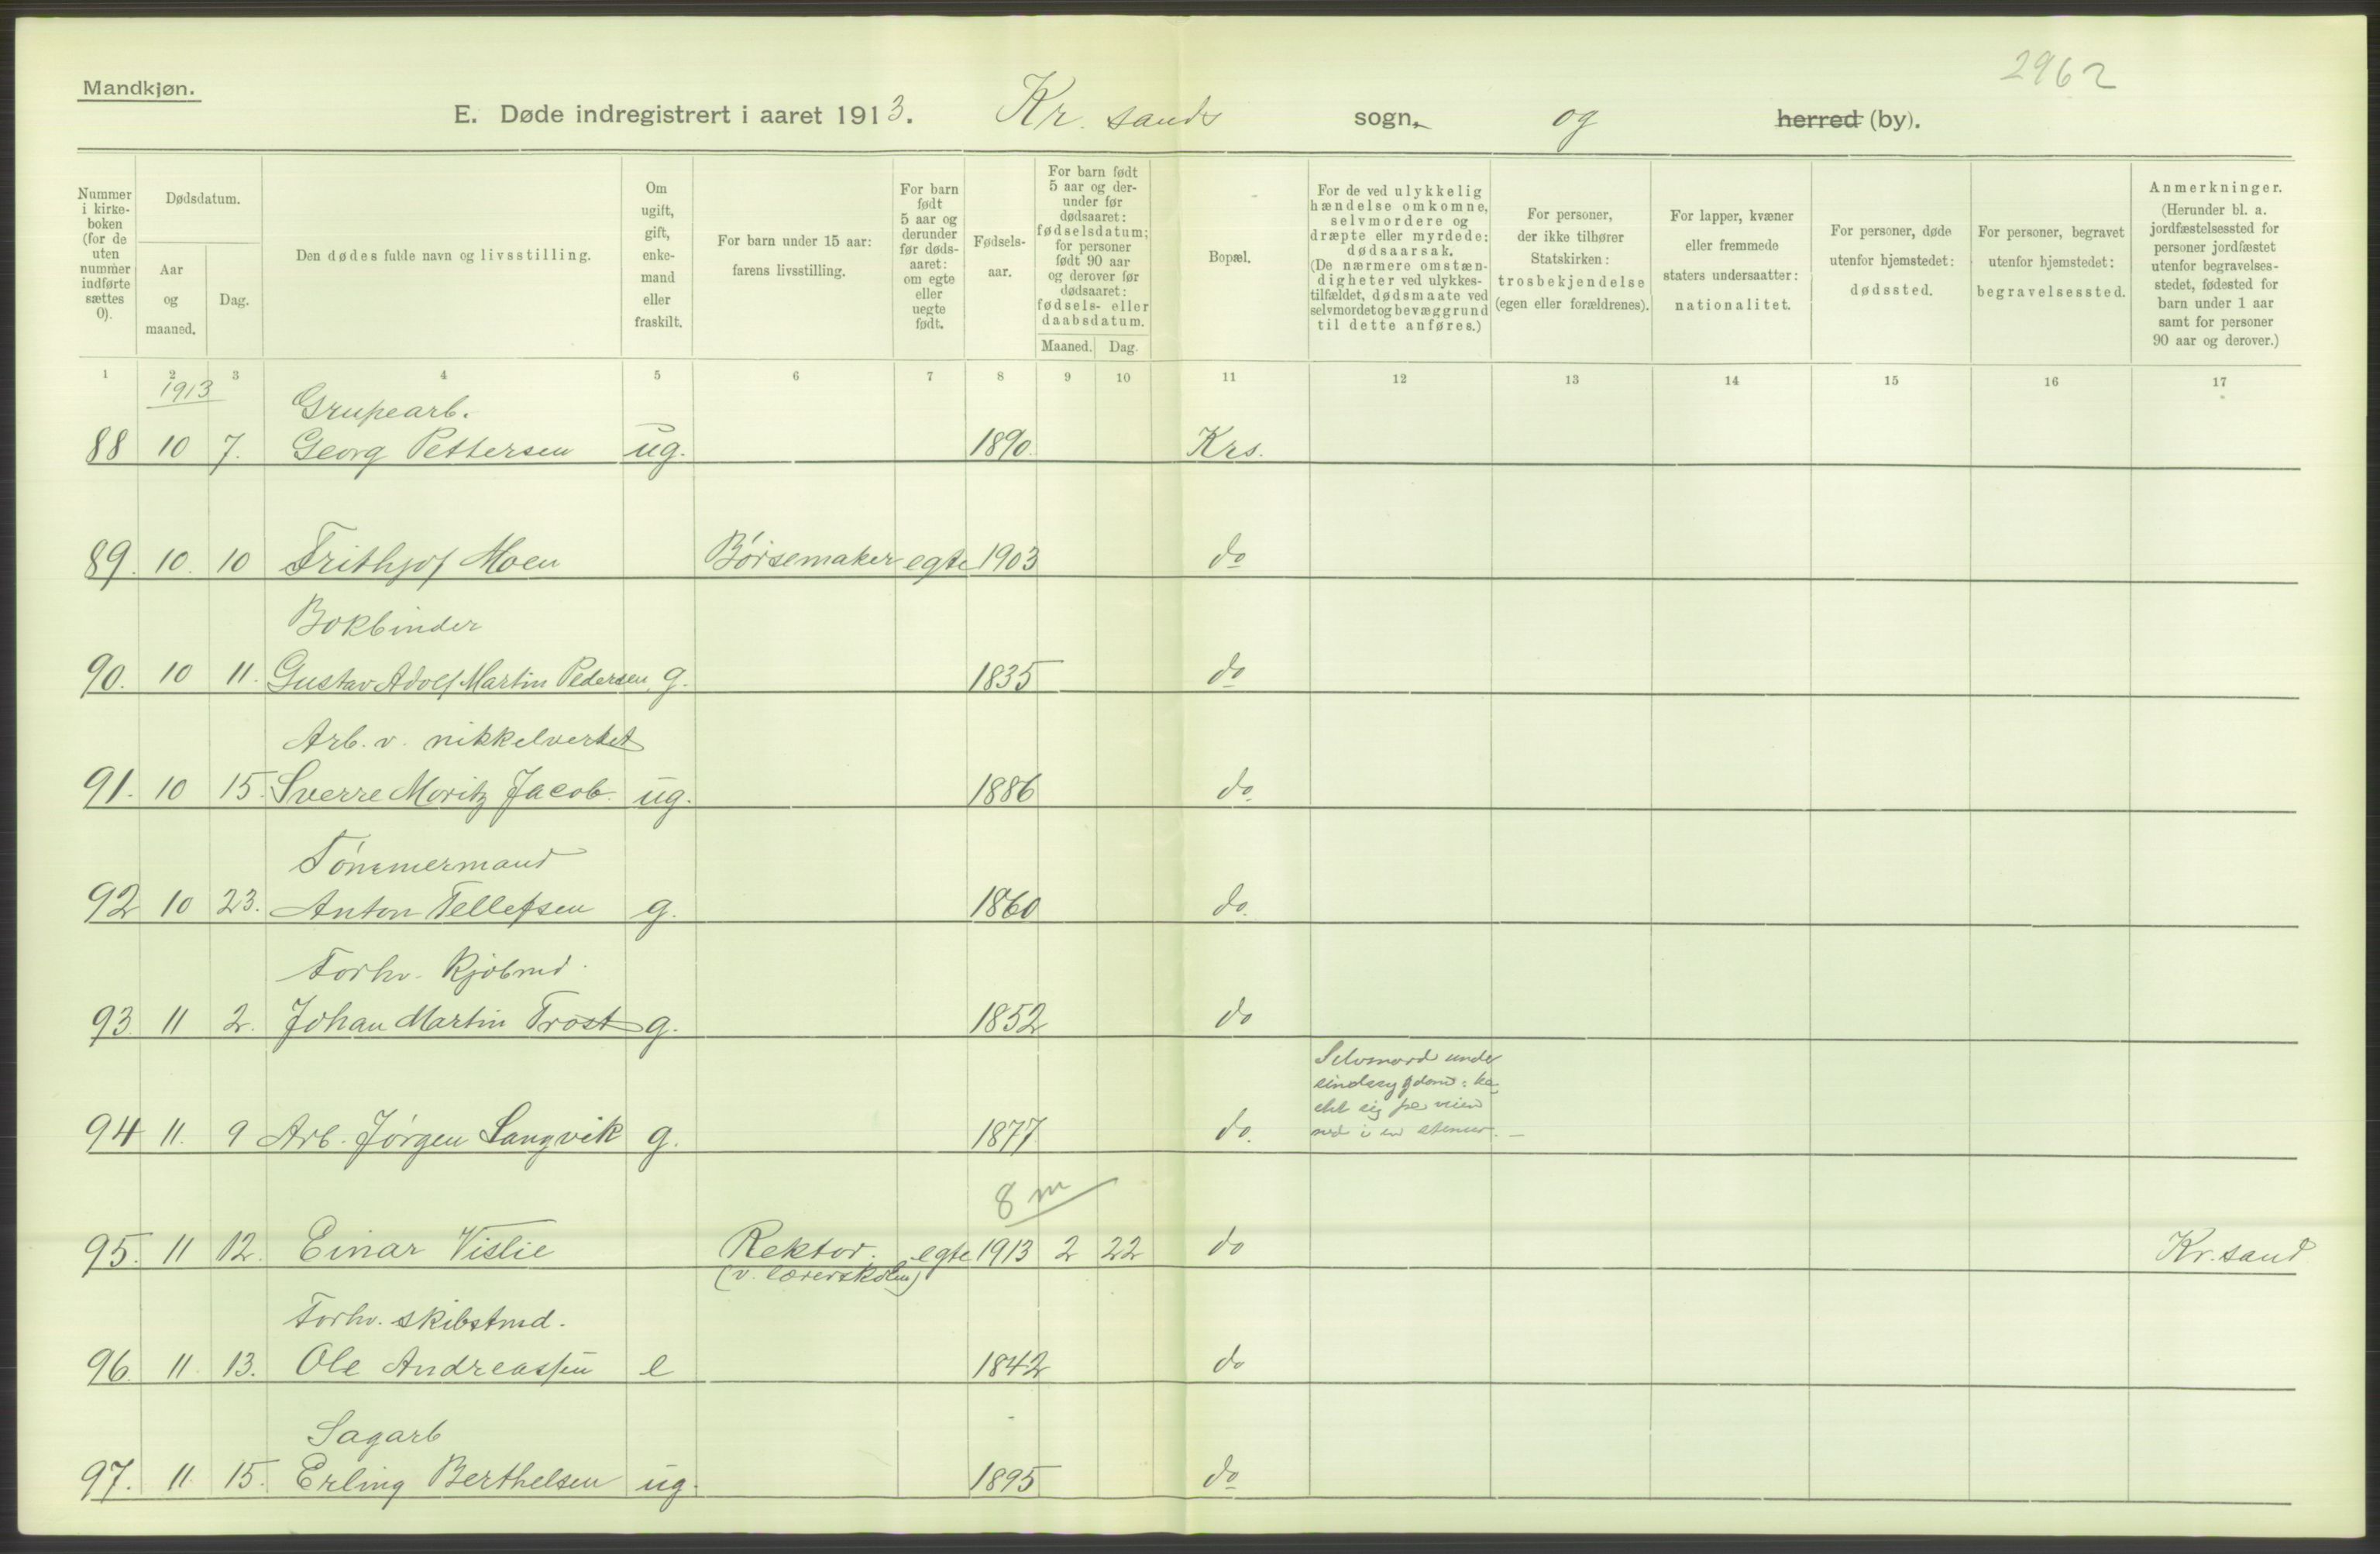 2962
Mandkjøn.
E. Døde indregistrert i aaret 1913. Kr. sands sogn, og herred (by).
Nummer i kirkeboken (for de uten nummer indførte sættes 0).
Dødsdatum.
Aar og maaned.
Dag.
Den dødes fulde navn og livsstilling.
Om ugift, gift, enkemand eller fraskilt.
For barn under 15 aar: farens livsstilling.
For barn født 5 aar og derunder før dødsaaret: om egte eller uegte født.
Fødselsaar.
For barn født 5 aar og derunder før dødsaaret: fødselsdatum; for personer født 90 aar og derover før dødsaaret: fødsels- eller daabsdatum.
Maaned. Dag.
Bopæl.
For de ved ulykkelig hændelse omkomne, selvmordere og dræpte eller myrdede: dødsaarsak. (De nærmere omstændigheter ved ulykkestilfældet, dødsmaate ved selvmordet og bevæggrund til dette anføres.)
For personer, der ikke tilhører Statskirken: trosbekjendelse (egen eller forældrenes).
For lapper, kvæner eller fremmede staters undersaatter: nationalitet.
For personer, døde utenfor hjemstedet: dødssted.
For personer, begravet utenfor hjemstedet: begravelsessted.
Anmerkninger. (Herunder bl. a. jordfæstelsessted for personer jordfæstet utenfor begravelsesstedet, fødested for barn under 1 aar samt for personer 90 aar og derover.)
1 2 3 4 5 6 7 8 9 10 11 12 13 14 15 16 17
1913
Grupearb.
88 10 7. Georg Pettersen ug. 1890. Krs.
89. 10. 10 Frithjof Moen Børsemaker egte 1903 do
Bokbinder
90. 10 11. Gustav Adolf Martin Pedersen g. 1835 do
Arb. v. nikkelverket
91. 10 15. Sverre Moritz Jacob. ug. 1886 do
Tømmermand
92 10 23. Anton Tellefsen g. 1860 do.
Forhv. Kjøbmd.
93 11 2. Johan Martin Trost g. 1852 do
Selvmord under
sindssygdom:
sig
i en
94 11. 9 Arb. Jørgen Langvik g. 1877 do.
8 m
95. 11 12. Einar Vislie Rektor. egte 1913 2 22 do Kr.sand
(v. lærerskolen)
Forhv. skibstmd.
96. 11. 13. Ole Andreassen e 1842 do
Sagarb
97. 11. 15. Erling Berthelsen ug. 1895 do